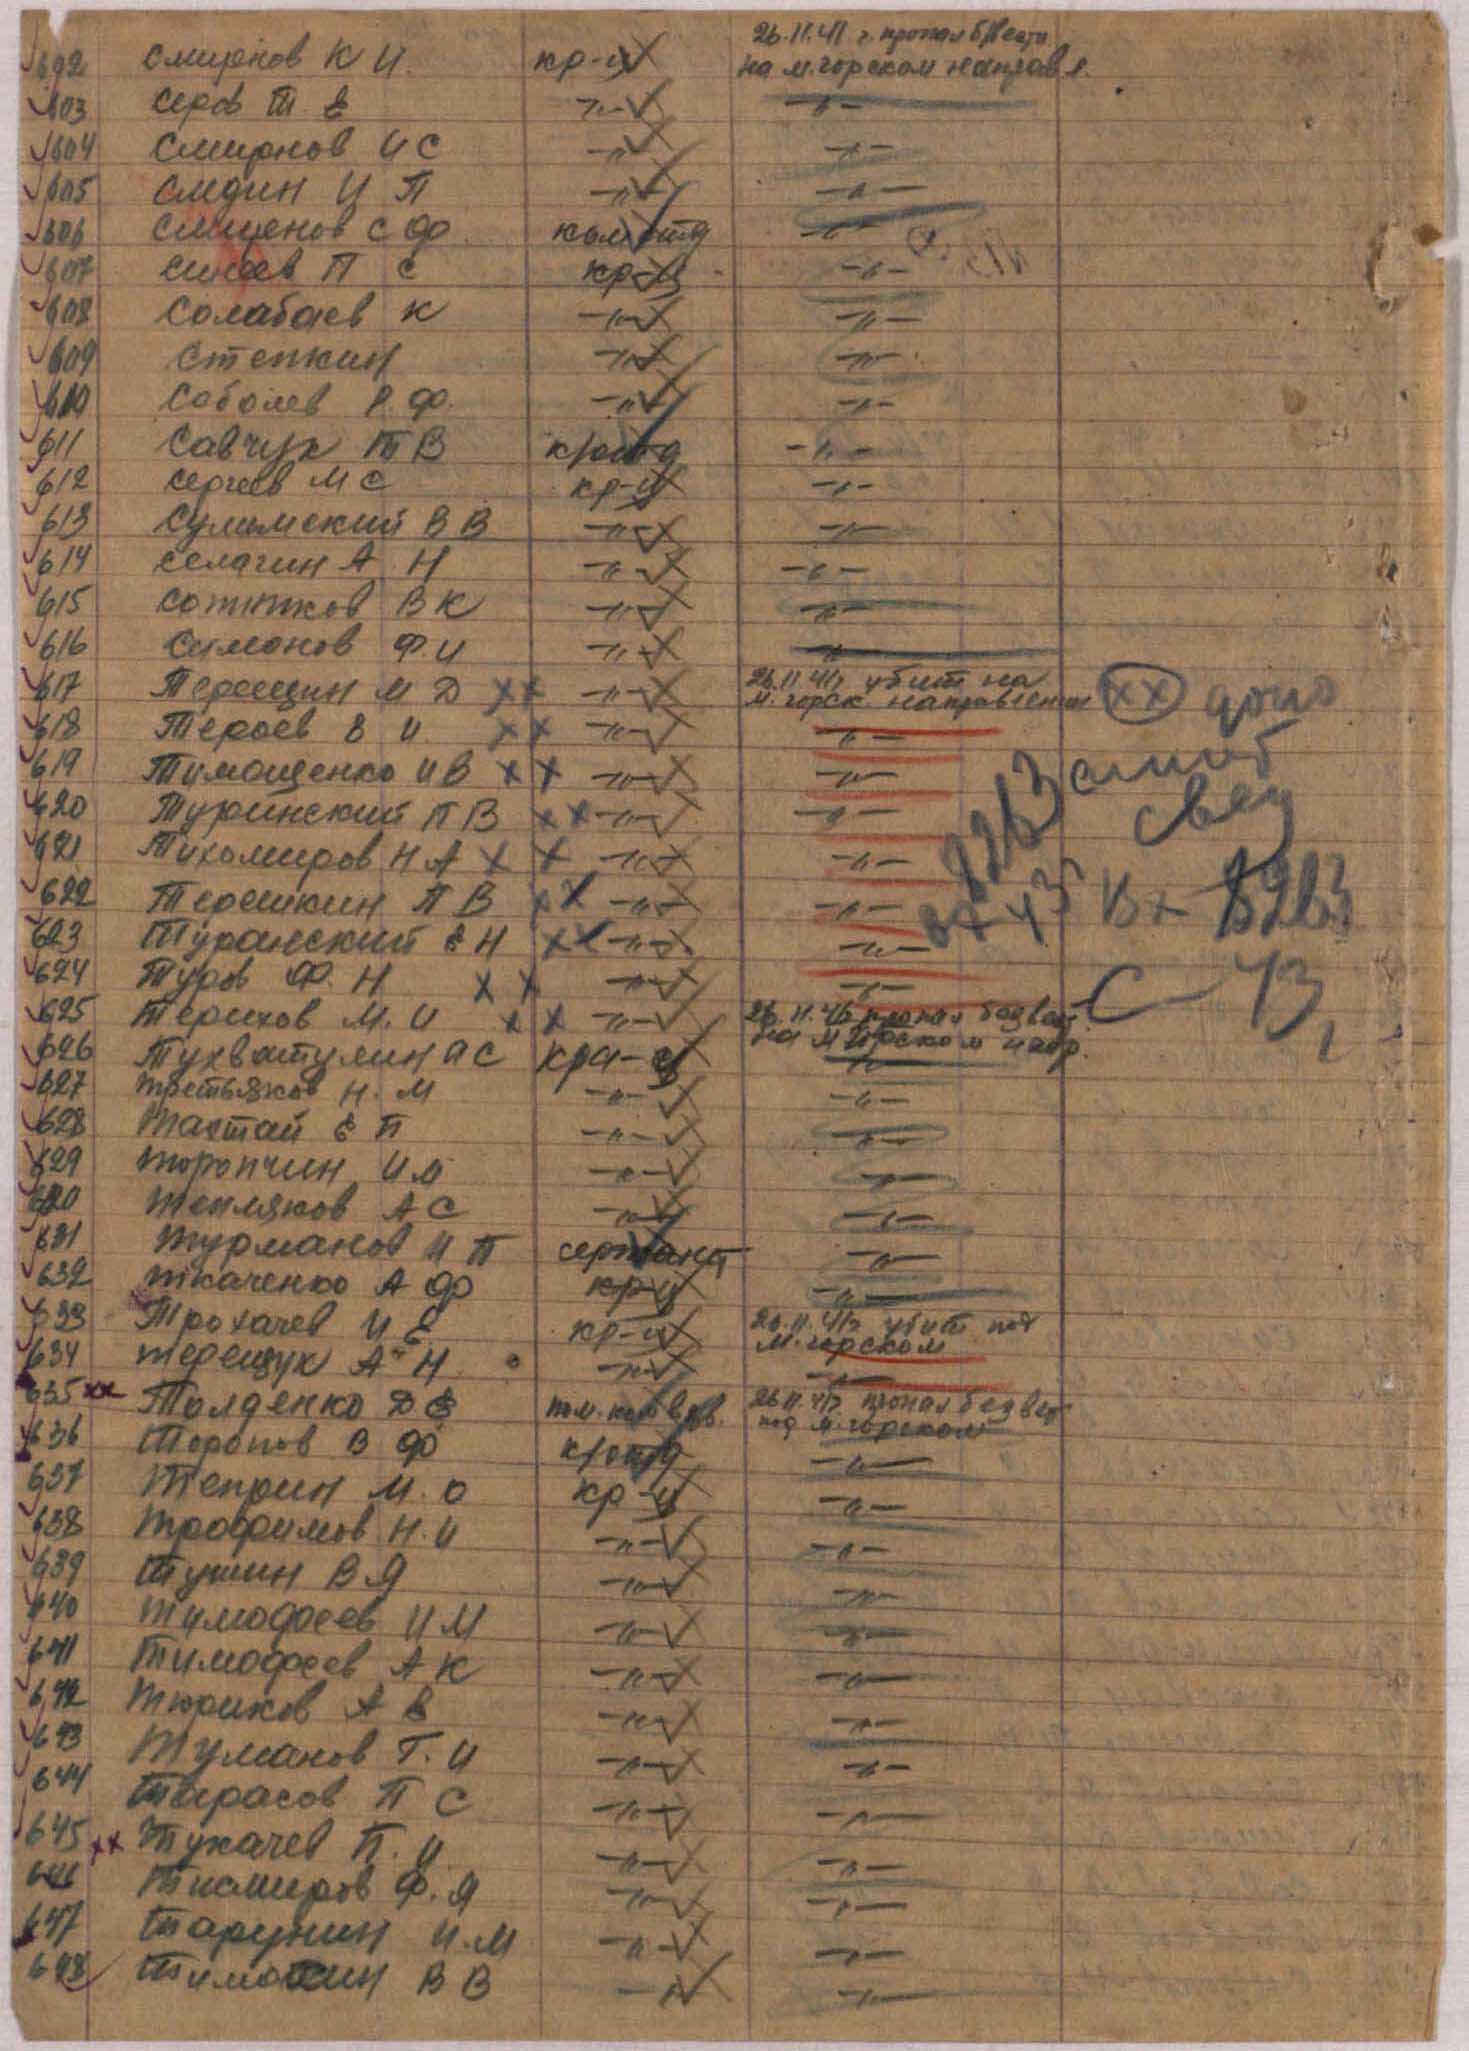 26.11.41 г. пропал б/вести
602 Смирнов К И. кр-ц на м.горском направл.
603 Серов Т. Е -"- -"-
604 Смирнов И С -"- -"-
605 Сидин И П -"- -"-
606 Смирнов С Ф ком отд -"-
607 Синеев П С кр-ц -"-
608 Солабаев К -"- -"-
609 Степкин -"- -"-
610 Соболев Р. Ф. -"- -"-
611 Савчук Т В к/отд -"-
612 Сергеев М С кр-ц -"-
613 Сулимский В В -"- -"-
614 Селагин А Н -"- -"-
615 В К -"- -"-
616 Симонов Ф И -"- -"-
617 Терещин М Д хх -"- 26.11.41г. убит на
м. горск. направлении хх
618 Тераев В И. хх -"- -"-
619 Тимощенко И В хх -"- -"-
620 Туринский П В хх -"- -"-
621 Тихомиров Н А х х -"- -"-
622 Терешкин П В хх -"- -"-
623 Туранский Е Н хх -"- -"-
Вх 8263
624 Туров Ф. Н хх -"- -"-
С 43
625 Терихов М. И хх -"- 26.11.41г пропал безвест
на м горском напр.
626 Тухватулин А С кра-ц -"-
627 Третьяков Н. М -"- -"-
628 Тахтай Е П -"- -"-
629 Торопчин И М -"- -"-
630 Тепляков А С -"- -"-
631 Турманов И П сержант -"-
632 Ткаченко А Ф кр-ц -"-
633 Трохачев И Е кр-ц 26.11.41г убит под
м. горском
634 Терещук А Н -"- -"-
635 хх Толденко Д Е пом. ком взв. 26.11.41г пропал безвест
под м. горском
636 Торопов В Ф к/отд -"-
637 Теприн М. О кр-ц -"-
638 Трофимов Н. И -"- -"-
639 В Я -"- -"-
640 Тимофеев И М -"- -"-
641 Тимофеев А К -"- -"-
642 Тюриков А В -"- -"-
643 Туманов Г. И -"- -"-
644 Тарасов П С -"- -"-
645 хх Тукачев П. И -"- -"-
646 Ф. Я -"- -"-
647 Тарунин И. М -"- -"-
648 Тимохин В В -"- -"-